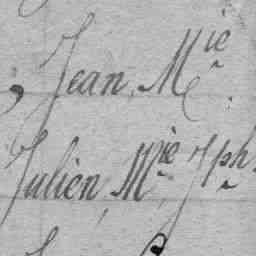 , Jean, M.ie
Julien, M.ie J.ph